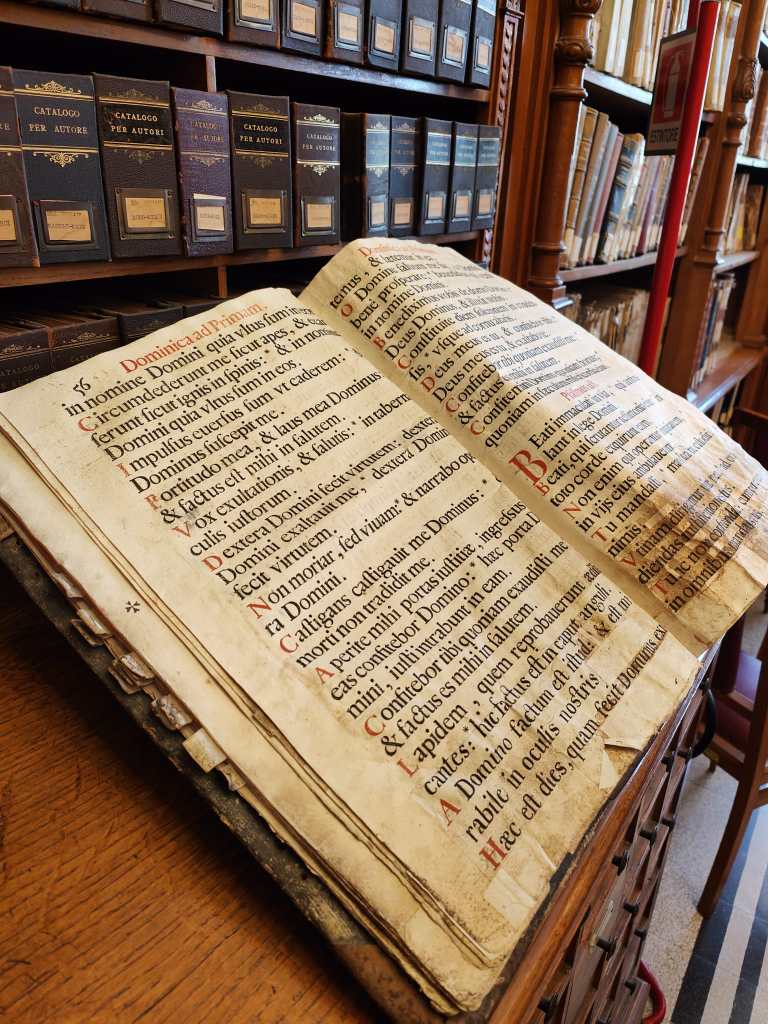 CATALOGO
PER AUTORE
CATALOGO
PER AUTORI
CATALOGO
PER AUTORI
CATALOGO
PER AUTORI
CATALOGO
PER AUTORI
ESTINTORE
56
Dominica ad Primam.
in nomine Domini quia vltus sum in
Circumdederunt me sicut apes, &
serunt sicut ignis in spinis: & in nomine
Domini quia vltus sum in eos.
Impulsus euersus sum vt caderem:
Dominus suscepit me.
Fortitudo mea, & laus mea Dominus:
& factus est mihi in salutem.
Vox exultationis, & salutis: in tabern
culis iustorum.
Dextera Domini fecit virtutem: dextera
Domini exaltauit me, dextera Domini
fecit virtutem.
Non moriar, sed viuam: & narrabo op
ra Domini.
Castigans castigauit me Dominus:
morti non tradidit me.
Aperite mihi portas iustitiæ, ingressus
eas confitebor Domino: hæc porta
mini, iusti intrabunt in eam.
Confitebor tibi quoniam exaudisti me
& factus es mihi in salutem.
Lapidem, quem reprobauerunt ædifi
cantes: hic factus est in caput anguli.
A Domino factum est istud: & est mi
rabile in oculis nostris
Hæc est dies, quam fecit Dominus ex
Dominica
terruis, & lætemur in ea.
O Domine saluum me
bene prosperare:
in nomine Domini.
Benediximus vobis de domo Domini
Deus Dominus, & illuxit nobis.
Constituite diem solemnem in conden
sis, vsque ad cornu altaris.
Deus meus es tu, & confitebor tibi
Deus meus es tu, & exaltabo te.
Confitebor tibi quoniam exaudisti me
& factus es mihi in salutem.
Confitemini Domino quoniam bonus:
quoniam in sæculum misericordia
Beati immaculati in via, qui ambu
lant in lege Domini.
Beati, qui scrutantur testimonia
toto corde exquirunt eum.
Non enim qui operantur
in vijs eius ambulauerunt.
Tu mandasti, mandata tua
nimis.
V
diendas iustificationes
Tunc non confundar,
in omnibus